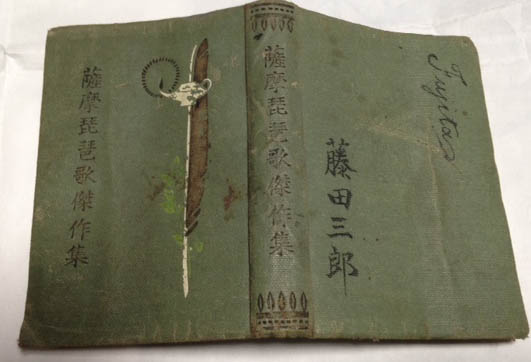 薩摩琵琶歌傑作集
薩摩琵琶歌傑作集
藤田三郎
Fujita